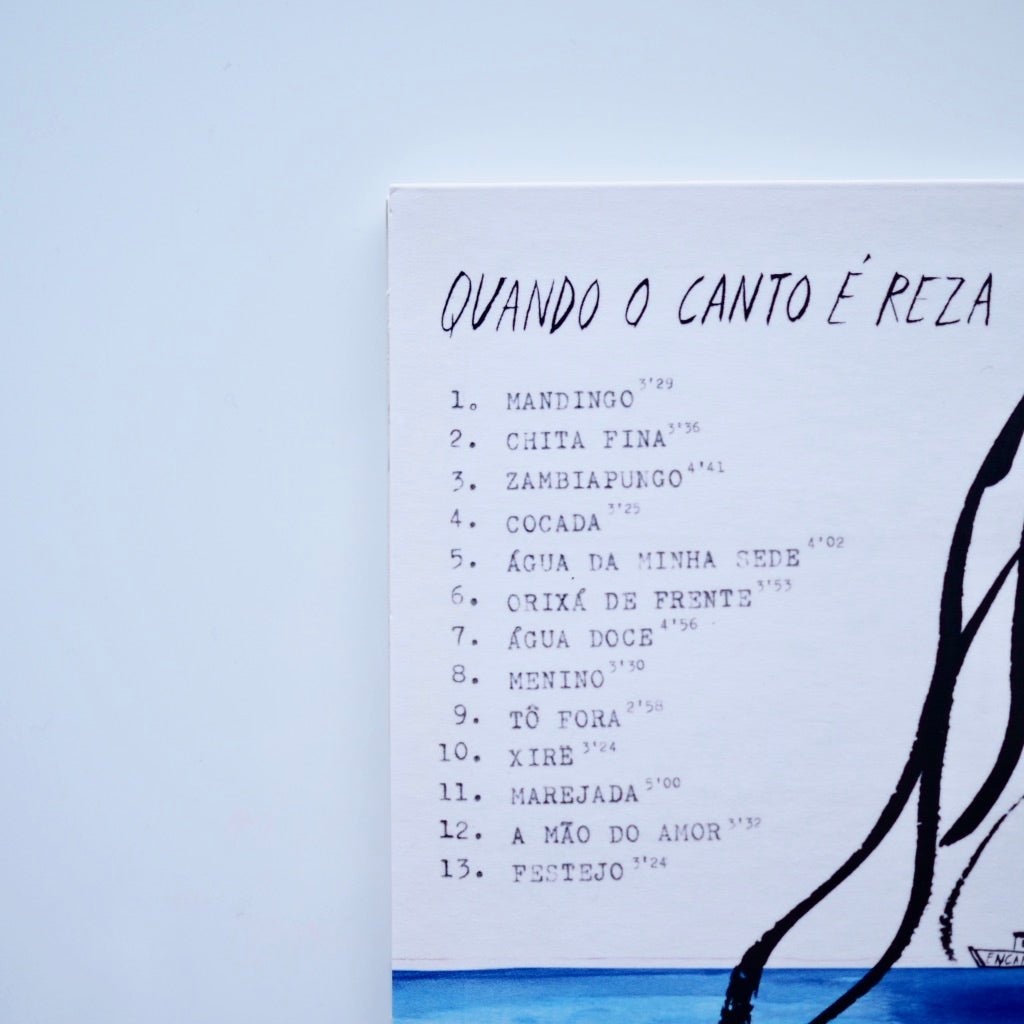 QUANDO O CANTO É REZA
1. MANDINGO 3'29
2. CHITA FINA 3'36
3. ZAMBIAPUNGO 4'41
4. COCADA 3'25
5. ÁGUA DA MINHA SEDE 4'02
6. ORIXÁ DE FRENTE 3'53
7. ÁGUA DOCE 4'56
8. MENINO 3'30
9. TÔ FORA 2'58
10. XIRÊ 3'24
11. MAREJADA 5'00
12. A MÃO DO AMOR 3'32
13. FESTEJO 3'24